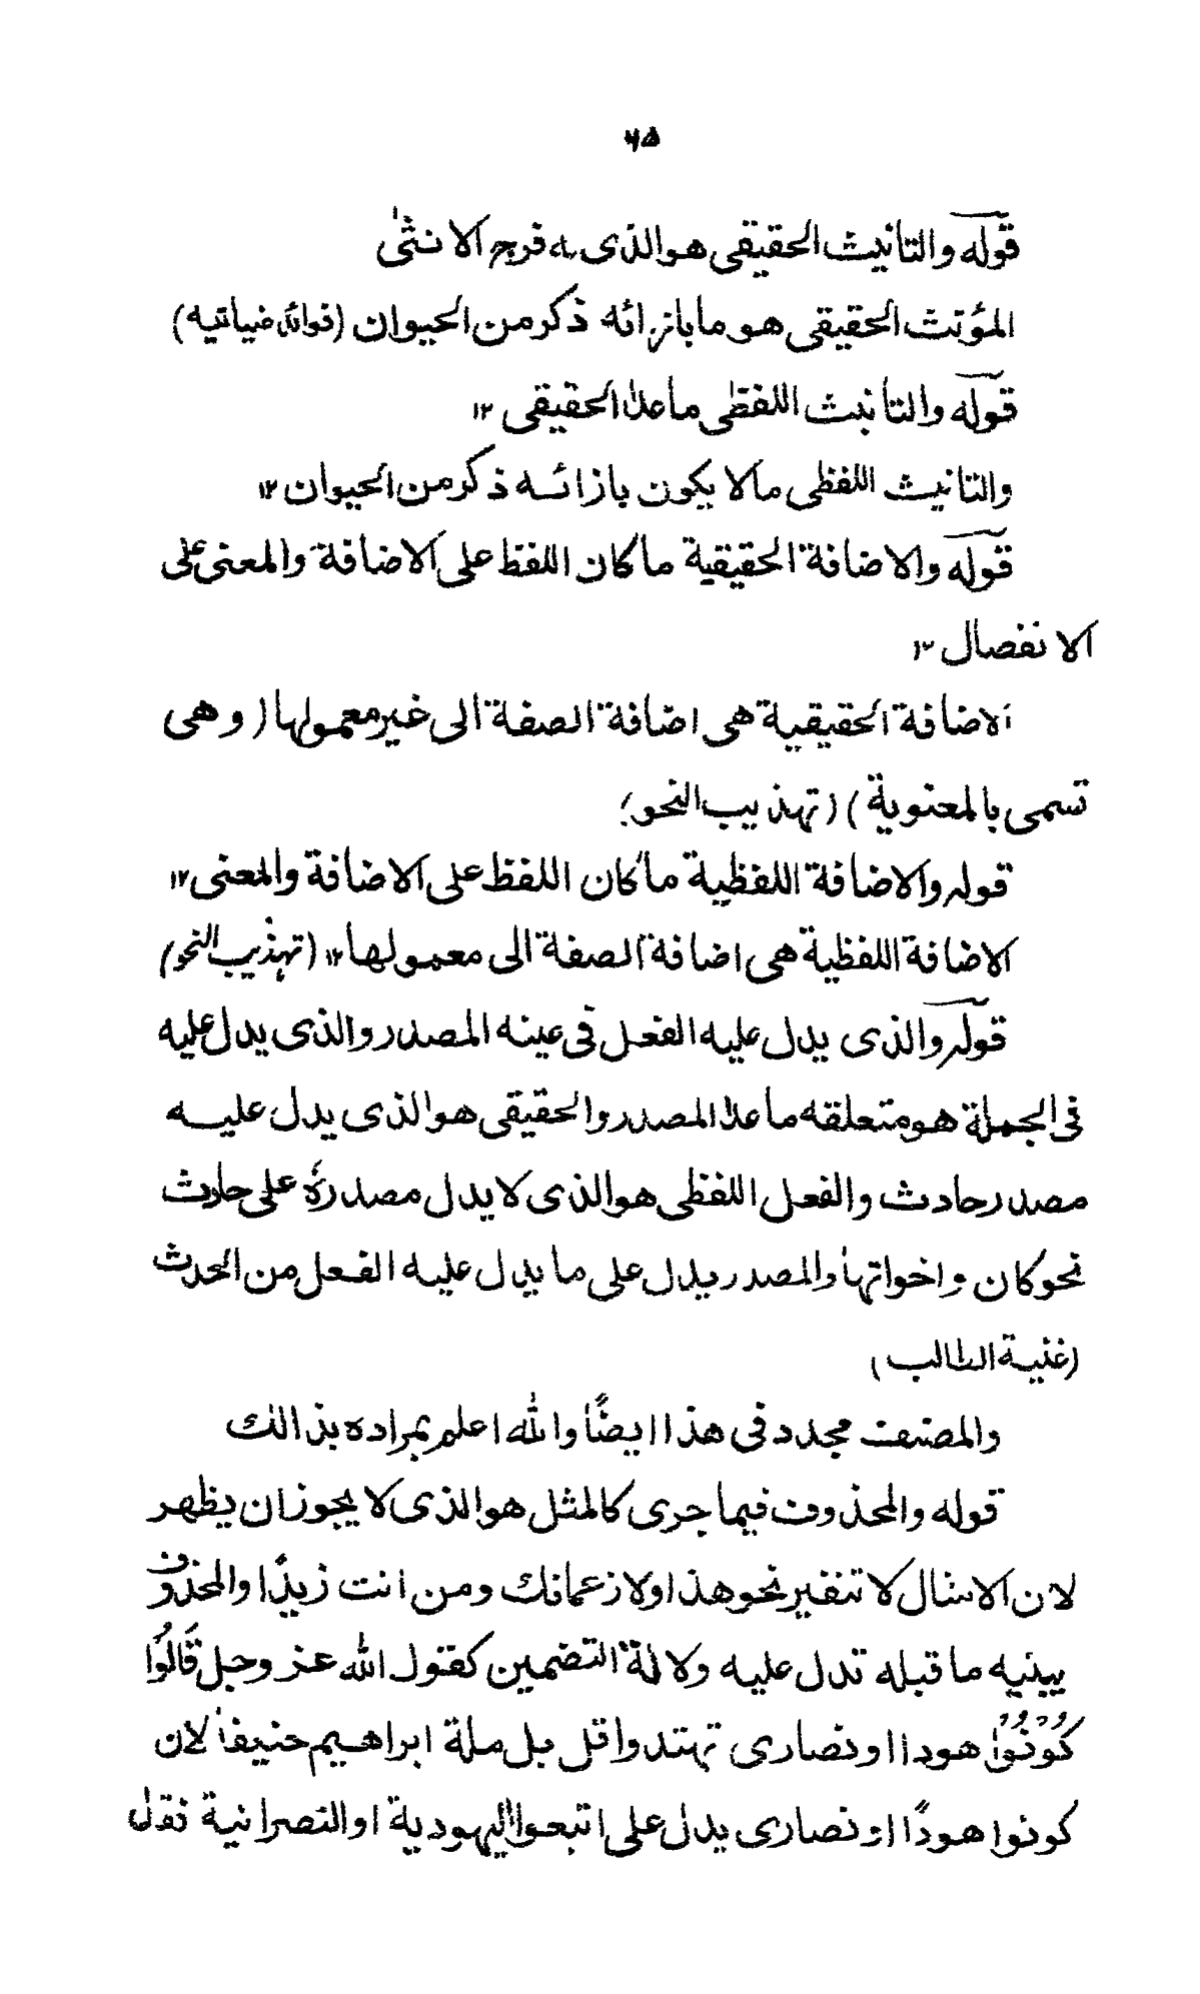 ۷۵
قوله والتأنيث الحقيقى هو الذى له فرج الانثىٰ
المؤنث الحقيقى هو ما بازائه ذكر من الحيوان (فوائد ضيائيه)
قوله والتأنيث اللفظى ما عدا الحقيقى ۱۲
والتانيث اللفظى مالا يكون بازائه ذكر من الحيوان ۱۲
قوله والاضافة الحقيقية ما كان اللفظ على الاضافة والمعنى على
الانفصال ۱۲
الاضافة الحقيقية هى اضافة الصفة الى غير معمولها (وهى
تسمى بالمعنوية) (تهذيب النحو)
قوله والاضافة اللفظية ما كان اللفظ على الاضافة والمعنى ۱۲
الاضافة اللفظية هى اضافة الصفة الى معمولها ۱۲ (تهذيب النحو)
قوله والذى يدل عليه الفعل فى عينه المصدر والذى يدل عليه
فى الجملة هو متعلقه ما عدا المصدر والحقيقى هو الذى يدل عليه
مصدر حادث والفعل اللفظى هو الذى لا يدل مصدرهٗ على حادث
نحو كان واخواتها والمصدر يدل على ما يدل عليه الفعل من الحدث
(غنية الطالب)
والمصنف مجدد فى هذا ايضًا والله اعلم بمراده بذالك
قوله والمحذوف فيما جرى كالمثل هو الذى لا يجوز ان يظهر
لان الامثال لا تتغير نحو هذا ولا زعماتك ومن انت زيدًا والمحذوف
يبنيه ما قبله تدل عليه ولالة التضمين كقول الله عز وجل قَالُوْا
كُوْنُوْا هودا او نصارى تهتدوا قل بل ملة ابراهيم حنيفا لان
كونوا هودًا او نصارى يدل على اتبعوا اليهودية او النصرانية نقل